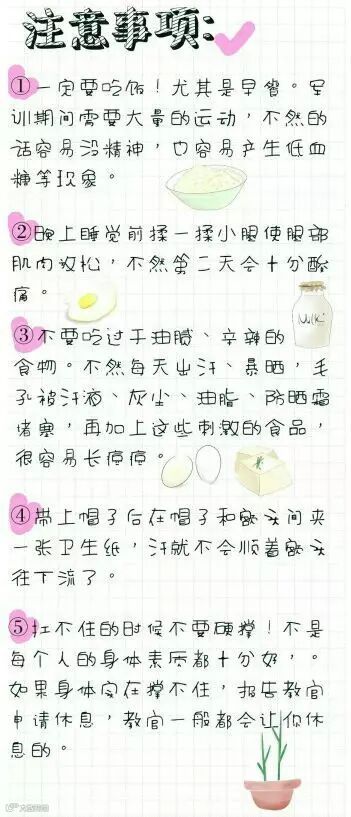 注意事项:
①一定要吃饭！尤其是早餐。军
训期间需要大量的运动，不然的
话容易没精神，也容易产生低血
糖等现象。
②晚上睡觉前揉一揉小腿使腿部
肌肉放松，不然第二天会十分酸
痛。
Milk
③不要吃过于油腻、辛辣的
食物。不然每天出汗、暴晒，毛
孔被汗液、灰尘、油脂、防晒霜
堵塞，再加上这些刺激的食品，
很容易长痘痘。
④带上帽子后在帽子和额头间夹
一张卫生纸，汗就不会顺着额头
往下流了。
⑤扛不住的时候不要硬撑！不是
每个人的身体素质都十分好，。
如果身体实在撑不住，报告教官
申请休息，教官一般都会让你休
息的。